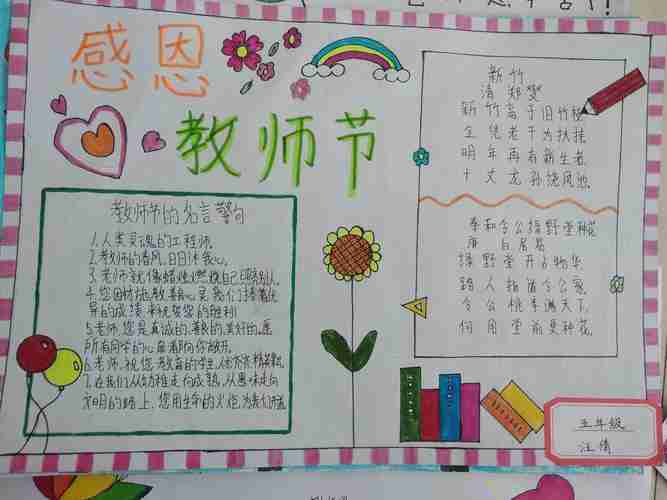 感恩
教师节
教师节的名言警句
1.人类灵魂的工程师.
2.教师的春风,日日沐我心.
3.老师就像蜡烛燃烧自己照亮别人.
4.您因材施教善教心是我们接着优
异的成绩来祝贺您的胜利
5.老师,您是真诚的,善良的,美好的.愿
所有同学的心扉都向你敞开.
6.老师,祝您教育的学生,
7.在我们从幼稚走向成熟,从愚昧走向
文明的路上,您用生命的火炬为我们开道
新竹
清 郑燮
新竹高于旧竹枝
全凭老干为扶持
明年再有新生者
十丈龙孙绕凤池.
奉和令公绿野堂种花
唐 白居易
绿野堂开占物华
路人指道令公家
令公桃李满天下
何用堂前更种花
五年级
汪倩